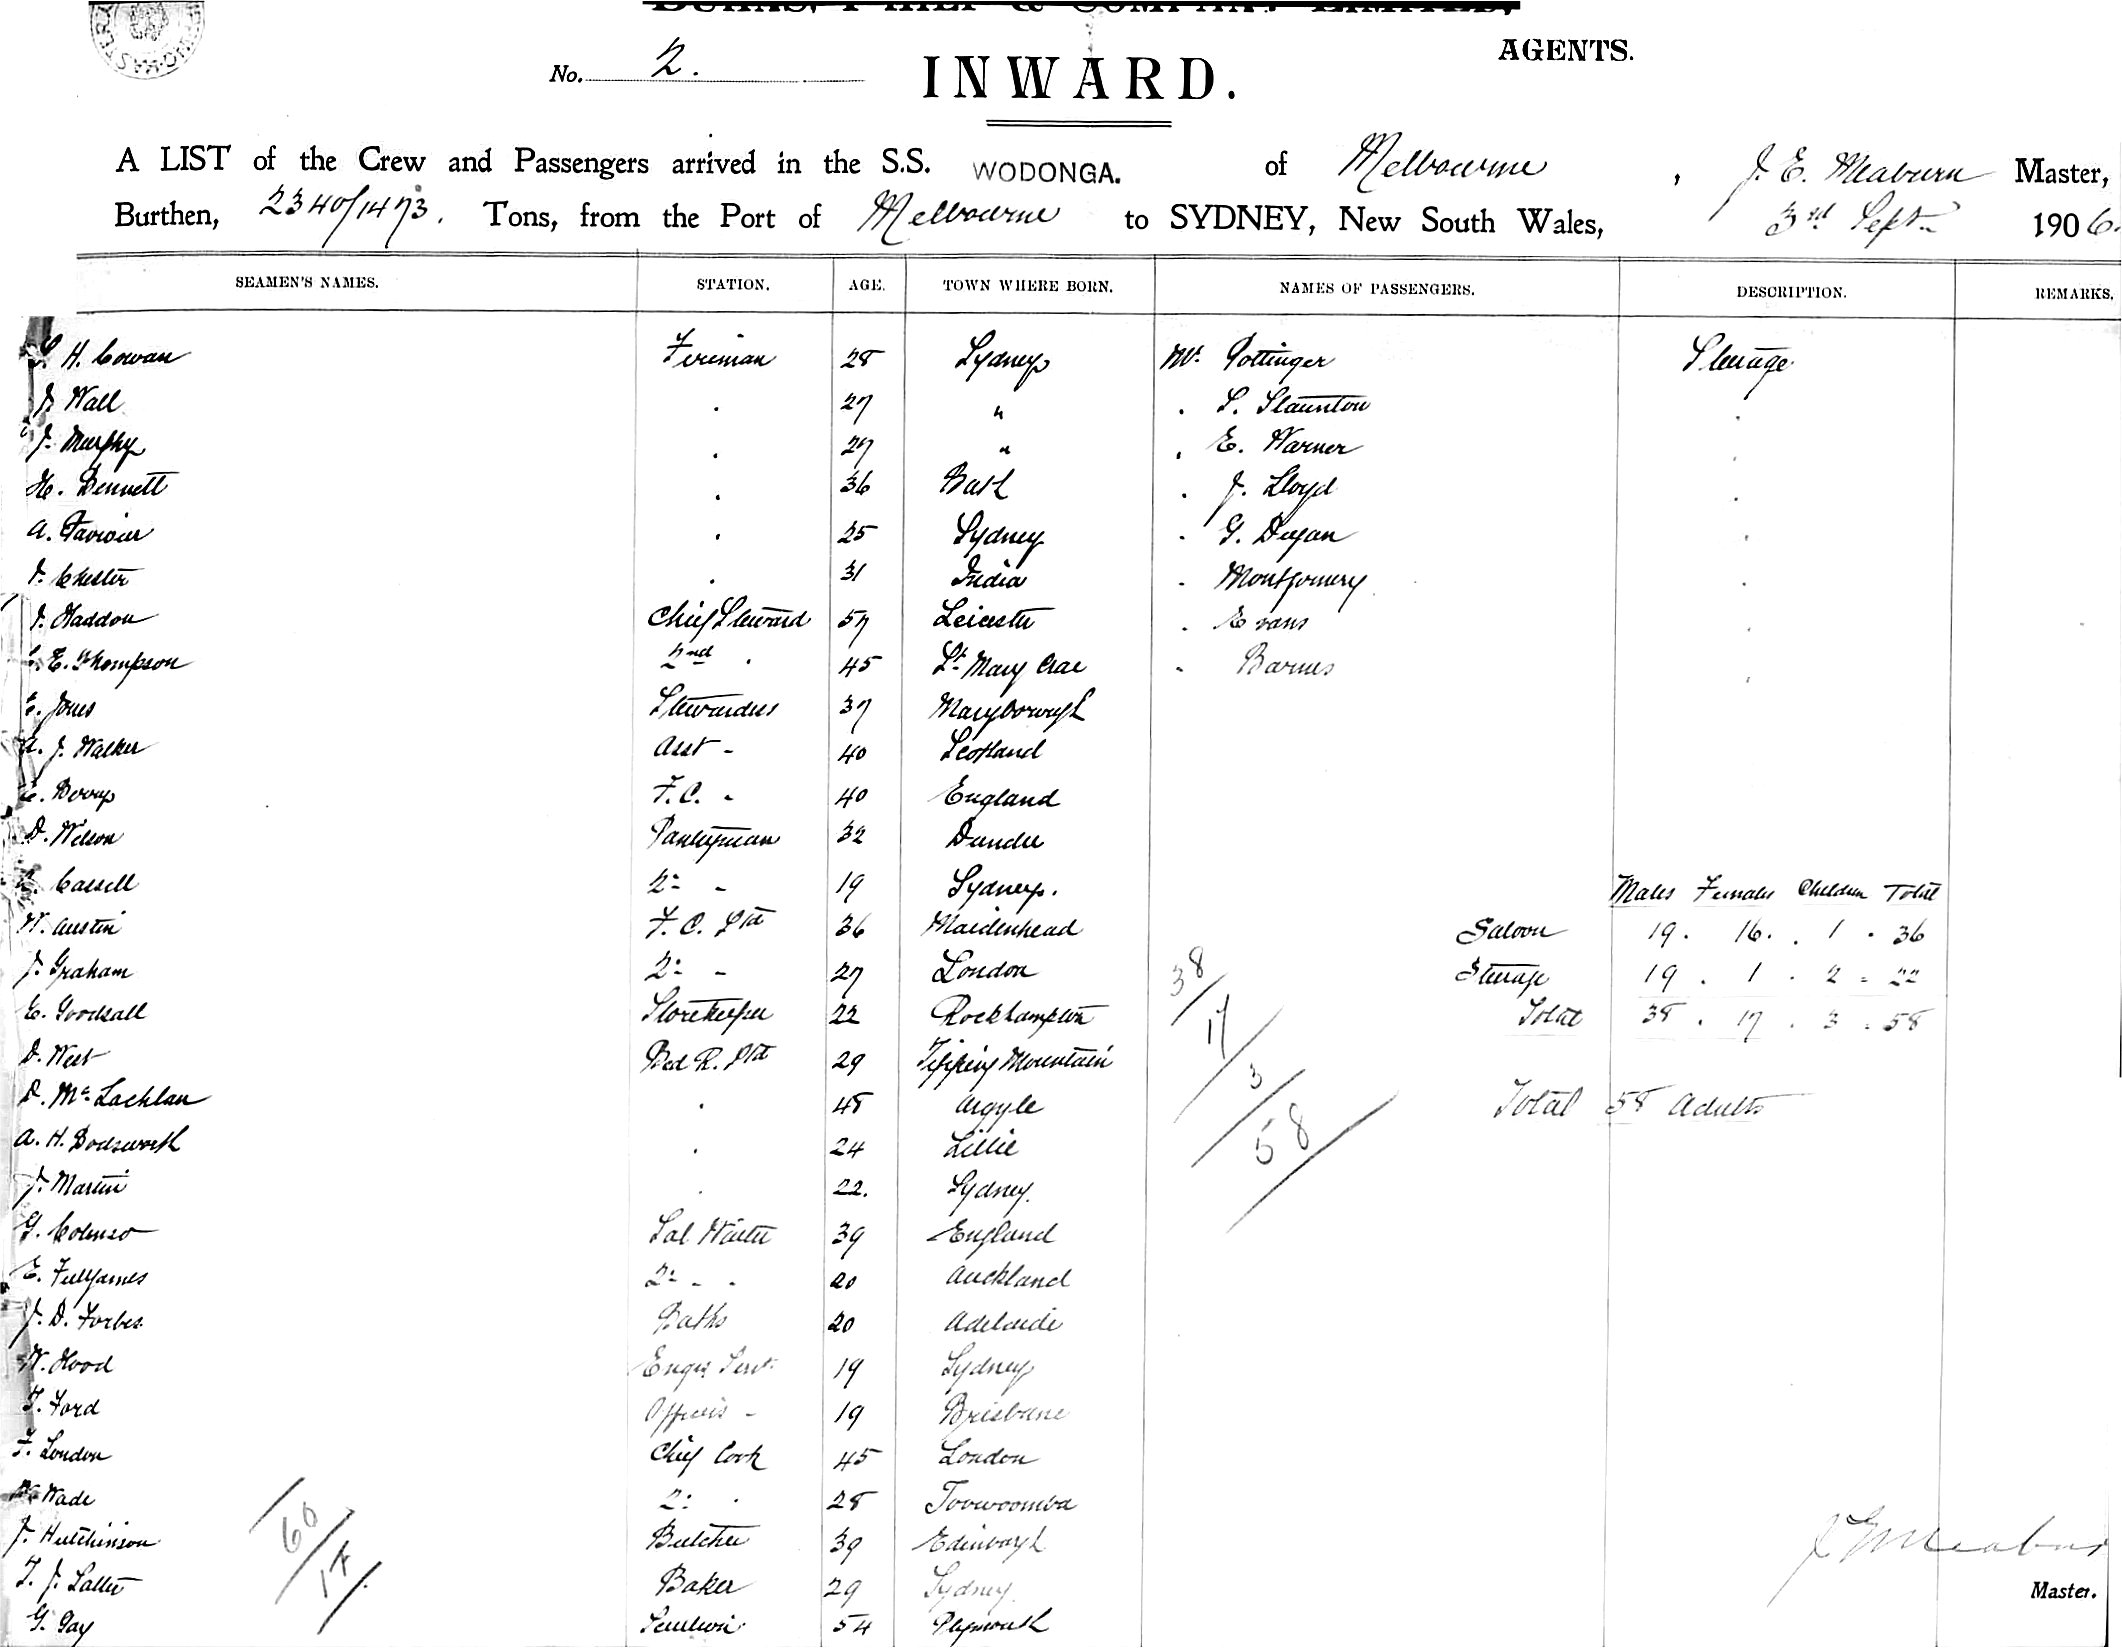 No. 2.
INWARD.
AGENTS.
A LIST of the Crew and Passengers arrived in the S.S. WODONGA. of Melbourne, J. E. Meaburn Master,
Burthen, 2340/1473. Tons, from the Port of Melbourne to SYDNEY, New South Wales, 3rd Sept. 1906.
SEAMEN'S NAMES. STATION. AGE. TOWN WHERE BORN. NAMES OF PASSENGERS. DESCRIPTION. REMARKS.
H. Cowan Fireman 28 Sydney Mr. Pottinger Steerage
J. Wall . 27 " . S. Staunton .
J. Murphy . 27 " . E. Warner .
H. Bennett . 36 Bath . J. Lloyd .
A. Faviour . 25 Sydney . G. Dugan .
J. Chester . 31 India . Montgomery .
J. Haddon Chief Steward 57 Leicester . Evans .
E. Thompson 2nd . 45 St Mary Crae . Barnes .
E. Jones Stewardess 37 Maryborough
A. J. Walker Asst - 40 Scotland
E. Berry F.C. - 40 England
D. Wilson Pantryman 32 Dundee
Cassell 2: - 19 Sydney. Males Females Children Total
W. Austin F. C. Std 36 Maidenhead Saloon 19. 16. 1. 36
J. Graham 2: - 27 London 38 Steerage 19. 1. 2. 22
E. Goodsall Storekeeper 22 Rockhampton 17 Total 38. 17. 3. 58
D. West Bed R. Std 29 Mountain 3
D. McLachlan . 48 Argyle Total 58 Adults
A. H. Bodsworth . 24 Lillie 58
J. Martin . 22. Sydney.
G. Colenso Sal Waiter 39 England
E. Fulljames 2: - - 20 Auckland
J. D. Forbes Baths 20 Adelaide
W. Hood Engrs Servt. 19 Sydney
T. Ford Officers - 19 Brisbane
F. London Chief Cook 45 London
W. Wade 2: . 28 Toowoomba
J. Hutchinson Butcher 39 Edinborgh
T. J. Salter Baker 29 Sydney.
60
14
J E Meaburn
Master.
G. Gay Scullion 54 Plymouth